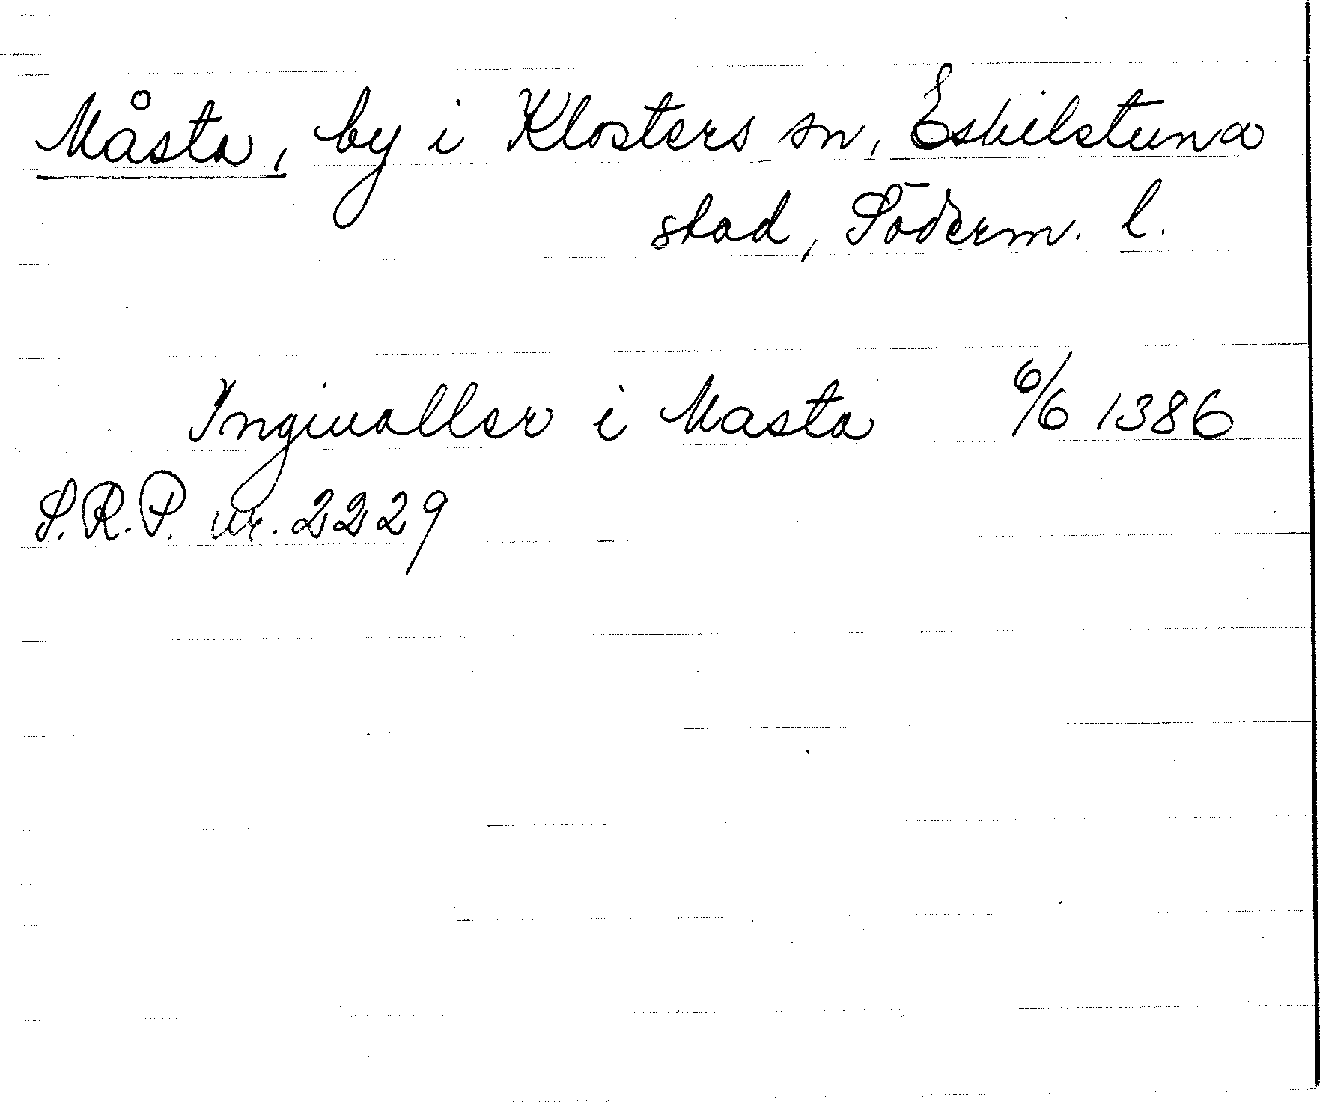 Måsta, by i Klosters sn, Eskilstuna
stad, Söderm. l.
Ingiualler i Masta 6/6 1386
S.R.P. nr. 2229